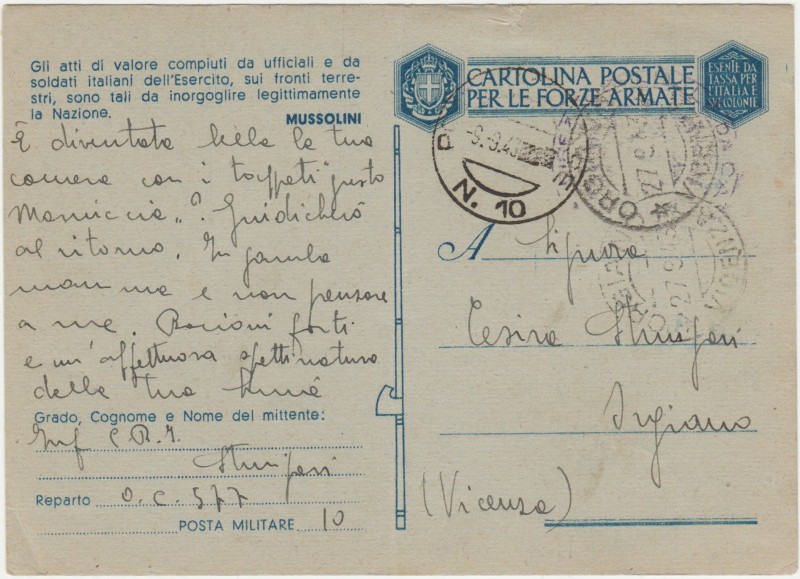 Gli atti di valore compiuti da ufficiali e da
soldati italiani dell'Esercito, sui fronti terre-
stri, sono tali da inorgoglire legittimamente
la Nazione.
MUSSOLINI
È diventata bella la tua
camera con i tappeti "gusto
Mamiccia"? Giudicherò
al ritorno. In gamba
mamma e non pensare
a me. Bacioni forti
e un'affettuosa spettinatura
della tua
Grado, Cognome e Nome del mittente:
Inf C.R.I.
Reparto O.C. 577
POSTA MILITARE 10
CARTOLINA POSTALE
PER LE FORZE ARMATE
ESENTE DA
TASSA PER
L'ITALIA E
COLONIE
-9.9.43
N. 10
27.9.4
VICENZA
27.9.43
A Signora
Cesira
(Vicenza)